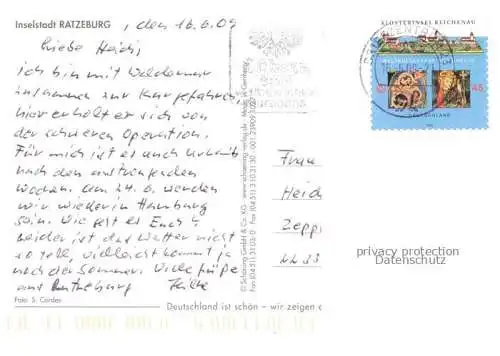 Inselstadt RATZEBURG, den 16.6.09
Liebe Heidi,
ich bin mit Waldemar
zusammen zur Kur gefahren,
hier erholt er sich von
der schweren Operation.
Für mich ist es auch Urlaub
nach den anstrengenden
Wochen. Am 24.6. werden
wir wieder in Hamburg
sein. Wie geht es Euch?
Leider ist das Wetter nicht
so toll, vielleicht kommt ja
noch der Sommer. Viele Grüße
aus Ratzeburg
Foto: S. Cordes
Deutschland ist schön – wir zeigen
© Schöning GmbH & Co. KG
www.schoening-verlag.de
Made in Germany
KLOSTERINSEL REICHENAU
45
DEUTSCHLAND
BRIEFZENTRUM
Frau
Heid
Zepp
privacy protection
Datenschutz